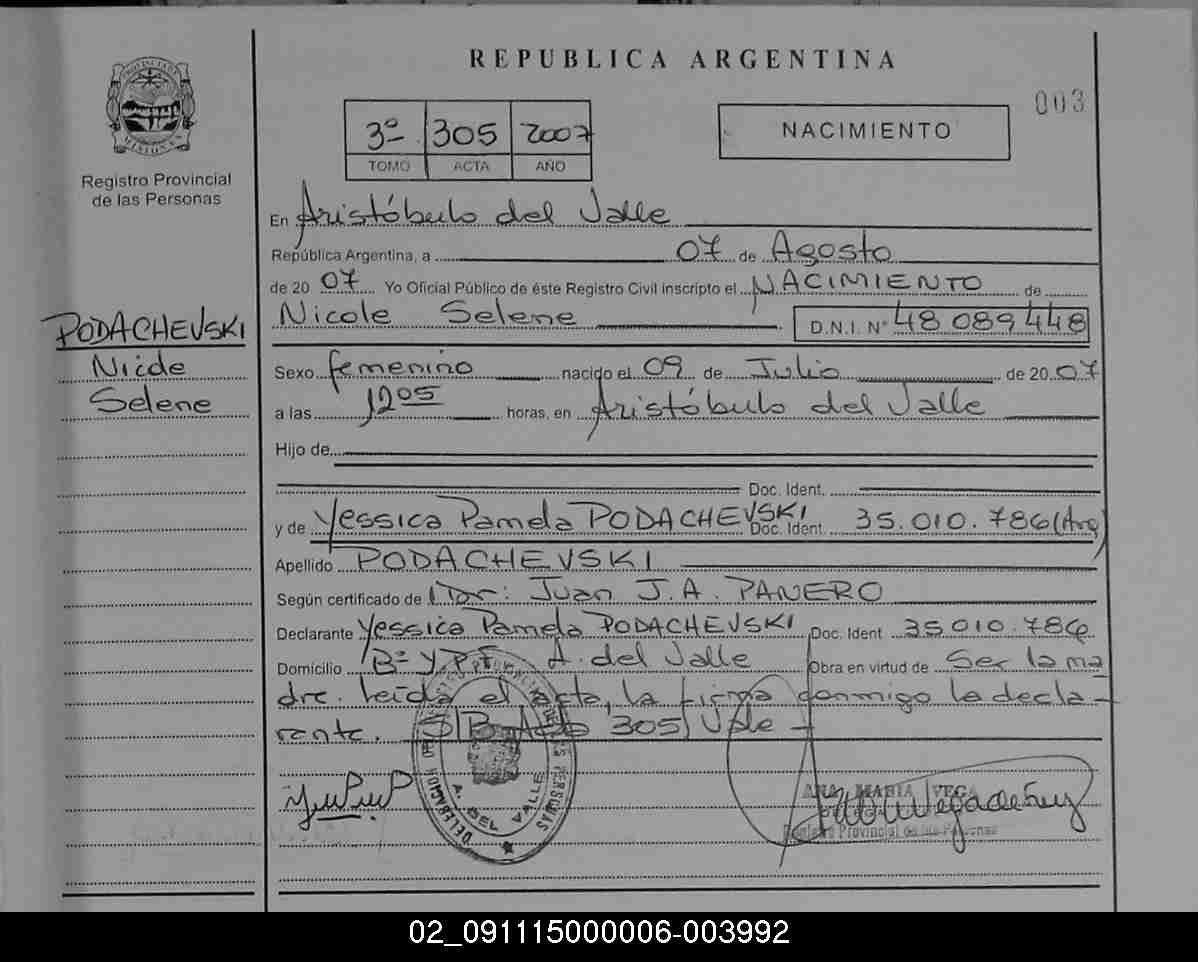 REPUBLICA ARGENTINA
003
PROVINCIA DE MISIONES
Registro Provincial
de las Personas
3º 305 2007
TOMO ACTA AÑO
NACIMIENTO
En Aristóbulo del Valle
República Argentina, a 07 de Agosto
de 20 07 Yo Oficial Público de éste Registro Civil inscripto el NACIMIENTO de
Nicole Selene D.N.I. Nº 48 089 448
PODACHEVSKI
Nicole
Selene
Sexo femenino nacido el 09 de Julio de 20 07
a las 12 05 horas, en Aristóbulo del Valle
Hijo de
Doc. Ident.
y de Yessica Pamela PODACHEVSKI Doc. Ident. 35.010.786 (Arg)
Apellido PODACHEVSKI
Según certificado de Dr: Juan J.A. PANERO
Declarante Yessica Pamela PODACHEVSKI Doc. Ident 35.010.786
Domicilio Bº Y.P.F. A. del Valle Obra en virtud de Ser la ma
dre. Leída el acta, la firma conmigo la decla-
rante. S/B 305 Vale -
DELEGACION A. DEL VALLE
ANA MARIA VEGA
Registro Provincial de las Personas
02_091115000006-003992